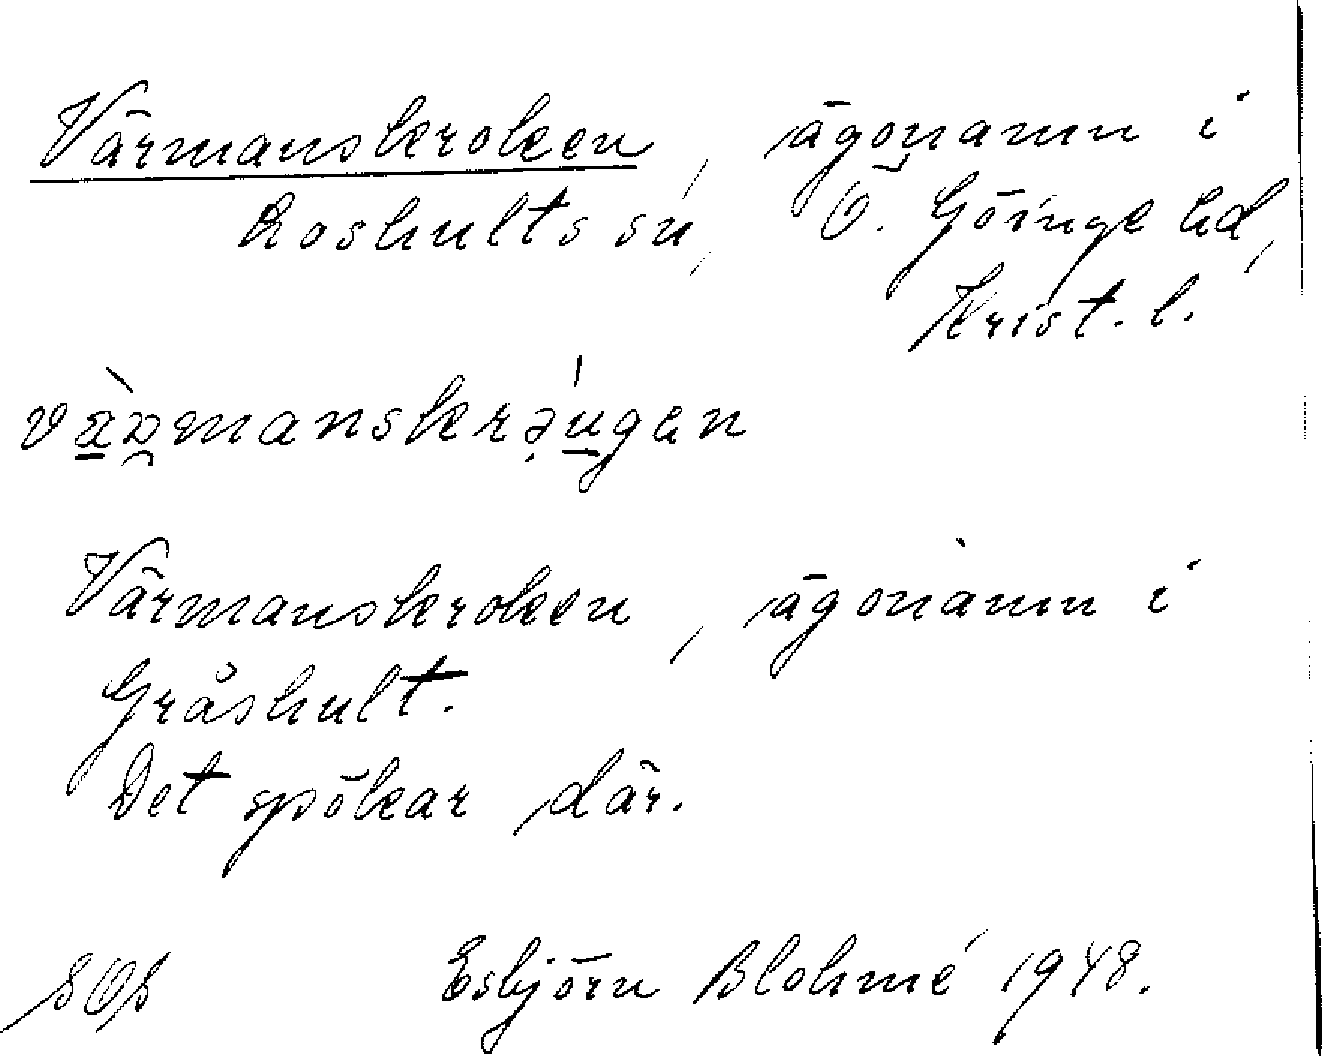 Värmanskroken, ägonamn i
Loshults sn, Ö. Göinge hd,
Krist. l.
Värmanskroken, ägonamn i
Gråshult.
Det spökar där.
Esbjörn Blohmé 1948.